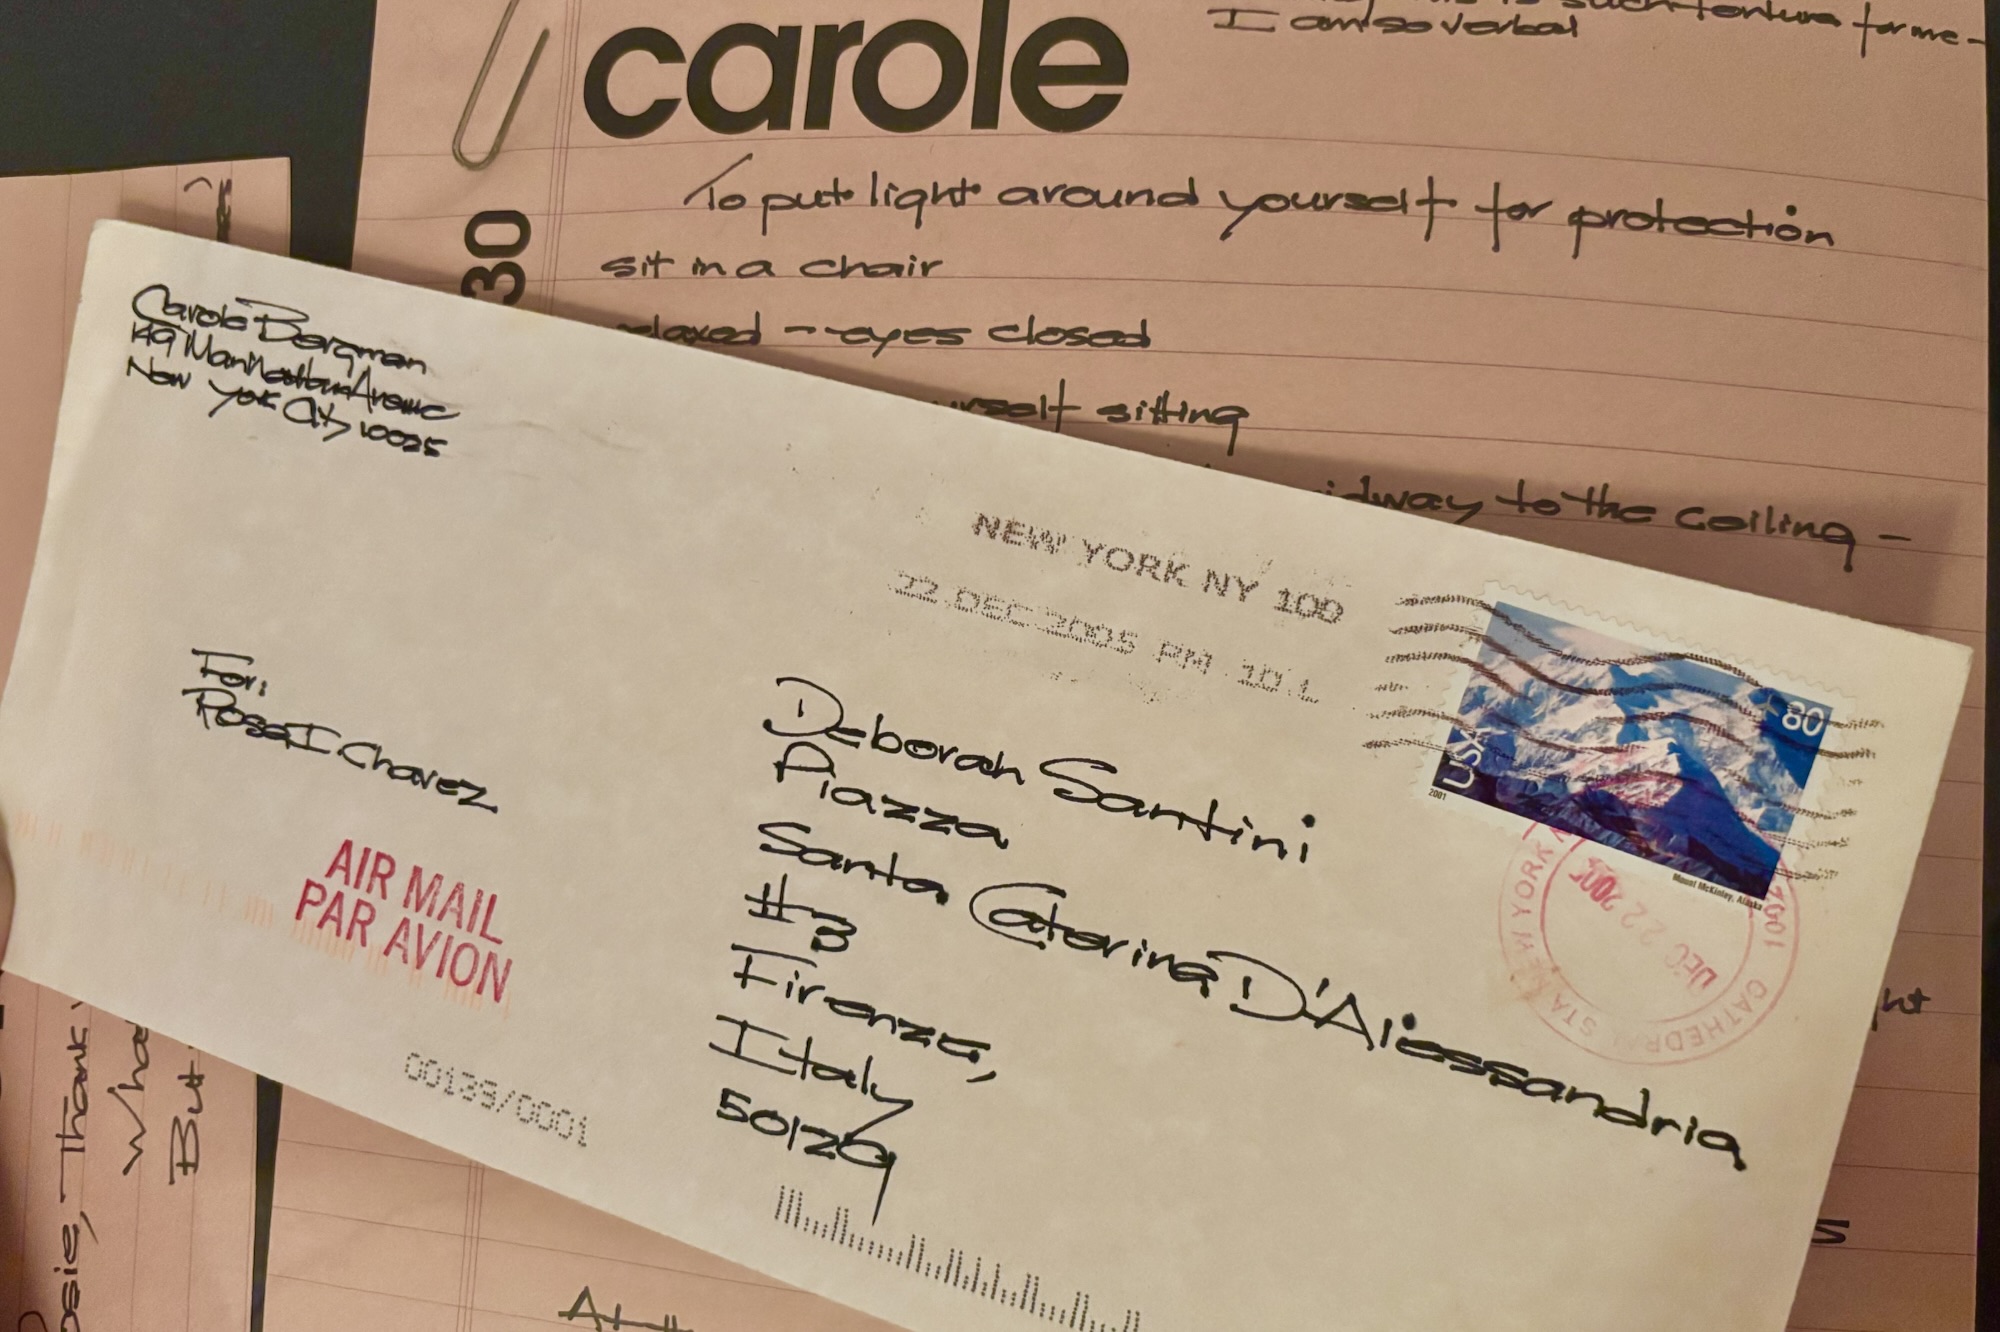 such torture for me -
I am so verbal
carole
To put light around yourself for protection
sit in a chair
relaxed - eyes closed
sitting
to the ceiling -
30
Carole Bergman
149 Manhattan Avenue
New York City 10025
NEW YORK NY 100
22 DEC 2005 PM 10 L
USA
80
2001
Mount McKinley, Alaska
For:
Rosa I. Chavez
AIR MAIL
PAR AVION
Deborah Santini
Piazza
Santa Caterina D'Alessandria
#3
Firenze,
Italy
50129
DEC 22 2005
CATHEDRAL STA NEW YORK
00139/0001
Thank
But